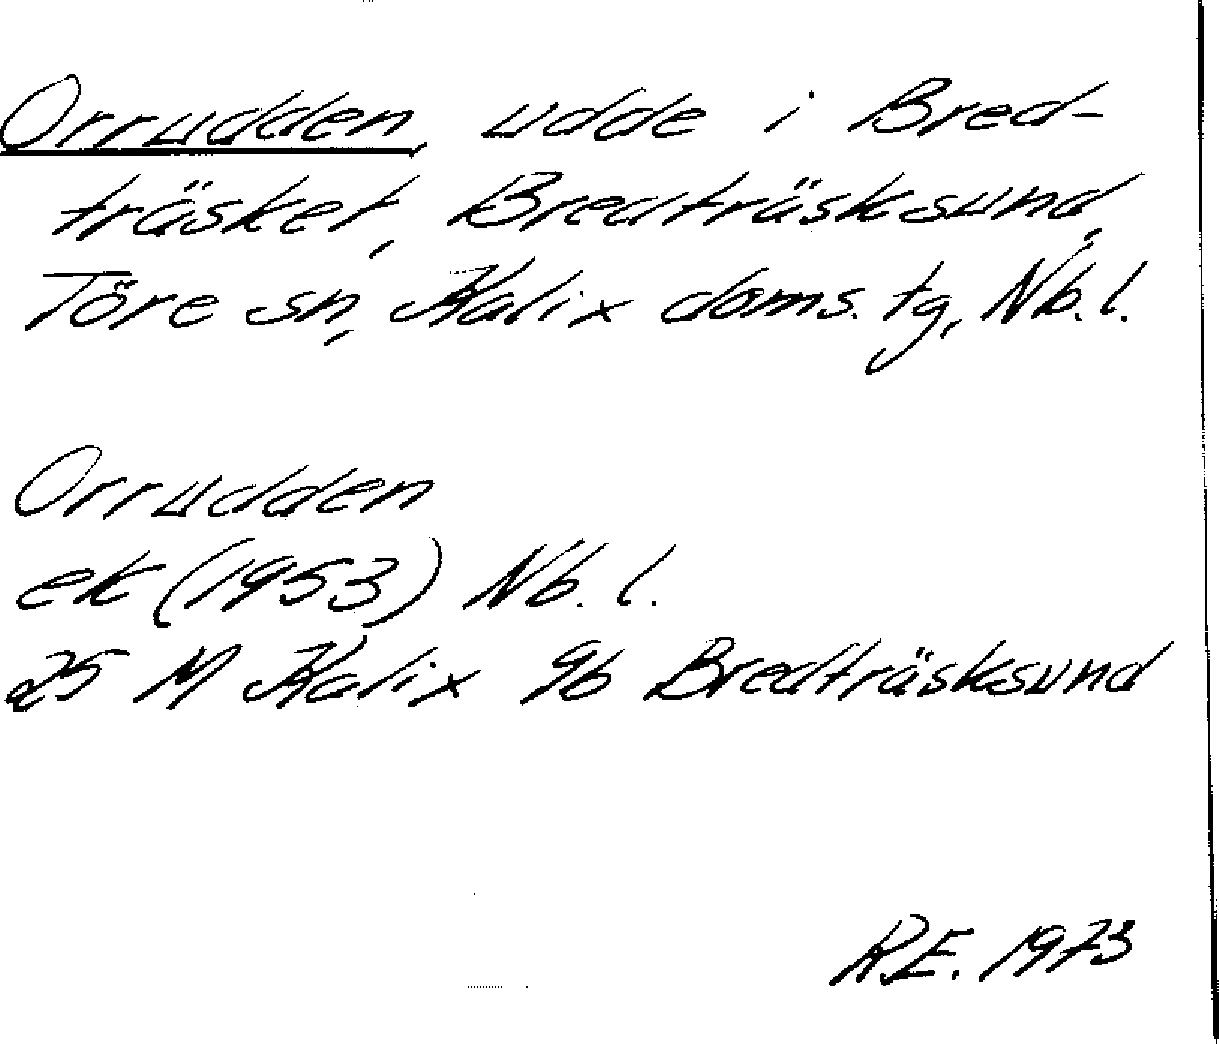 Orrudden, udde i Bred-
träsket, Bredträsksund,
Töre sn, Kalix doms. tg, Nb. l.
Orrudden
ek (1953) Nb. l.
25 M Kalix 9b Bredträsksund
R.E. 1973